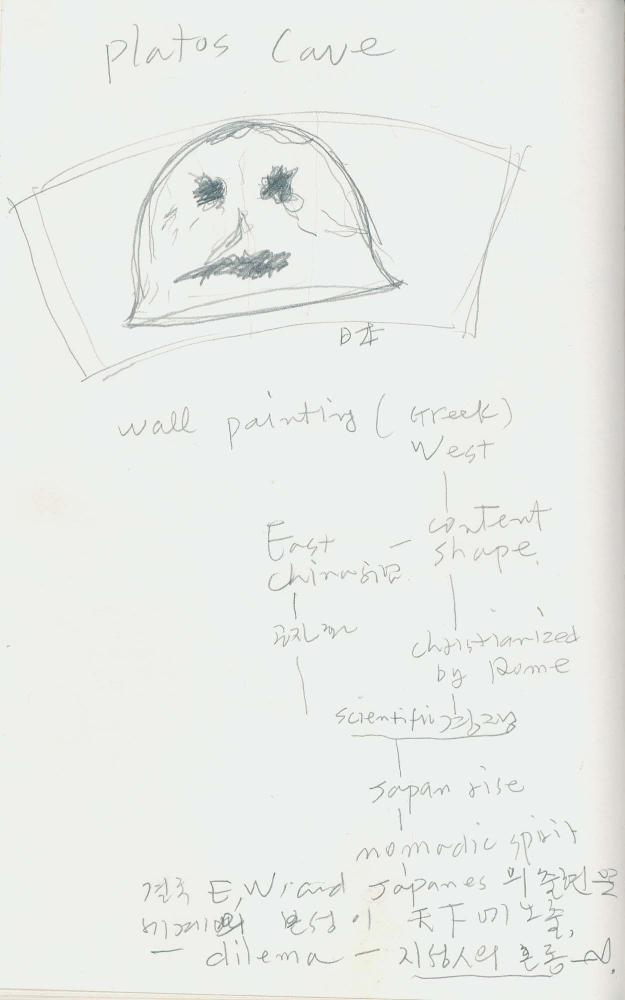 platos Cave
日本
wall painting (Greek)
West
East — content
shape.
china
christianized
by Rome
scientific
Japan rise
nomadic spirit
결국 E, W and Japanes 의 출현은
본성이 天下에 노출,
— dilema — 지성인의 혼동